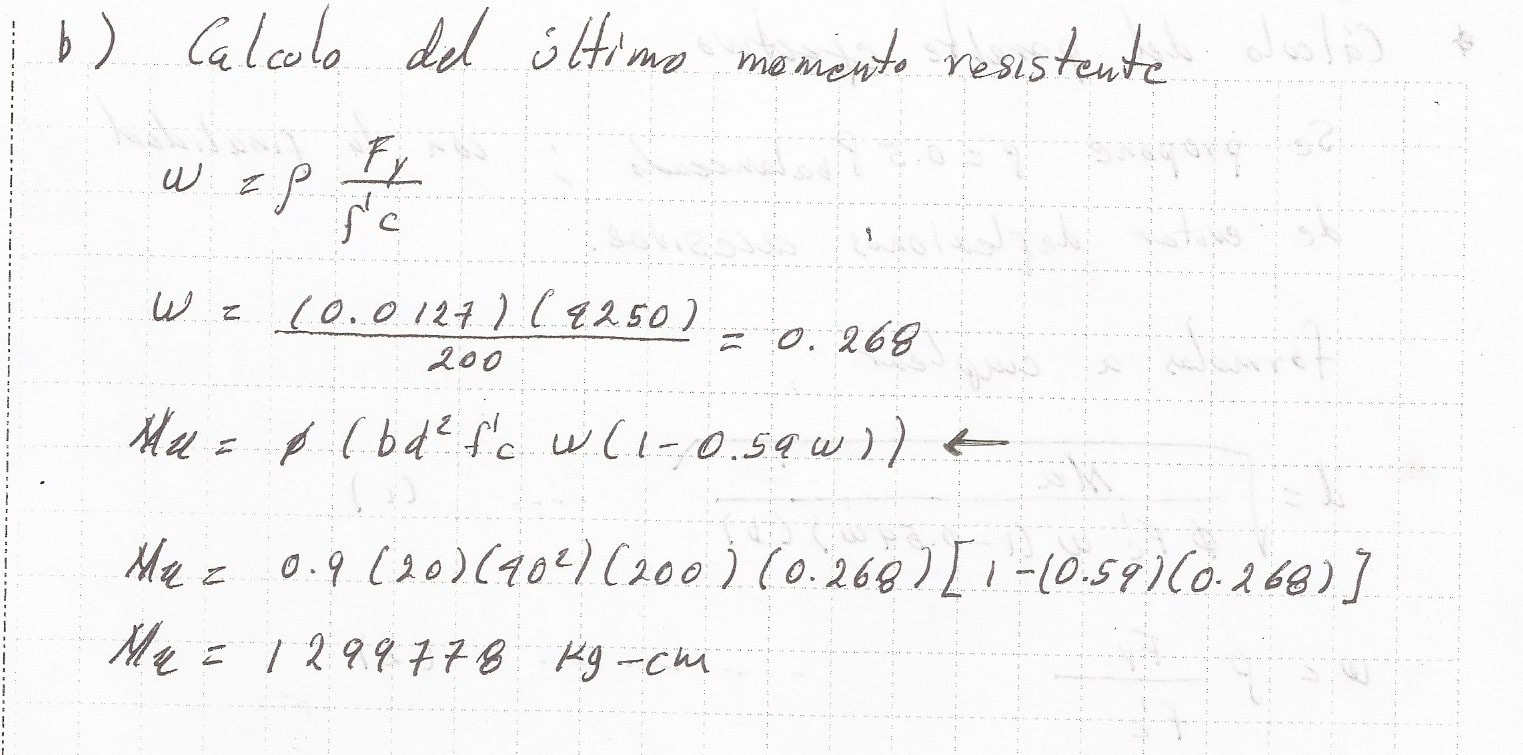 b) Calculo del último momento resistente
w = ρ Fy / f'c
w = (0.0127)(4250) / 200 = 0.268
Mu = ϕ (bd² f'c w(1-0.59w)) ←
Mu = 0.9 (20)(40²)(200)(0.268)[1-(0.59)(0.268)]
Mu = 1299778 kg-cm